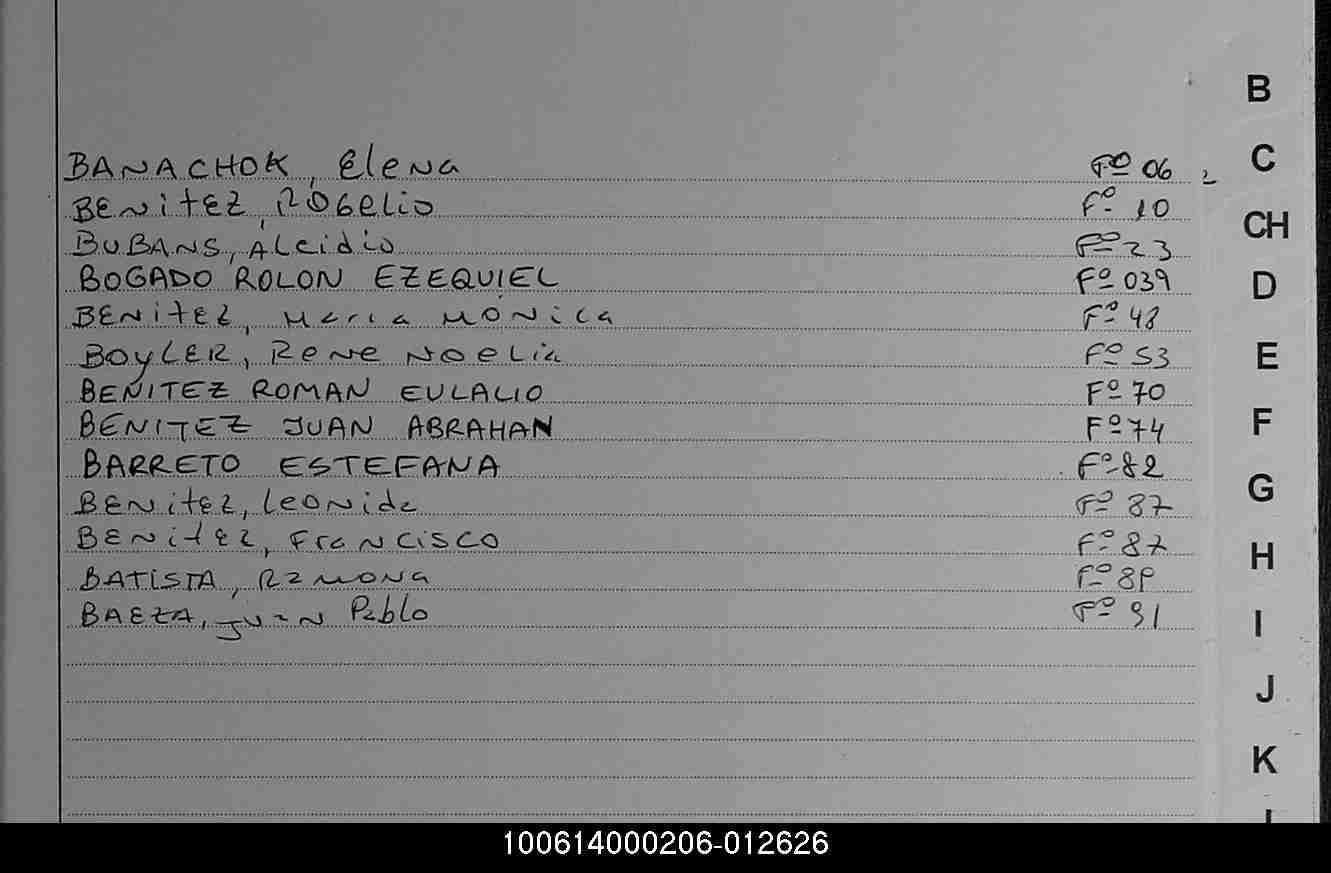 B
BANACHOK, Elena Fº 06
C
BENitEZ, ROGELio Fº 10
CH
BUBANS, ALcidio Fº 23
BOGADO ROLON EZEQUIEL Fº 039
D
BENitEZ, Maria MÓNica Fº 48
BOyLER, RENE NOELia Fº 53
E
BENITEZ ROMAN EULALIO Fº 70
BENITEZ JUAN ABRAHAN Fº 74
F
BARRETO ESTEFANA Fº 82
G
BENitEZ, LEONida Fº 87
BENitEZ, FranCisco Fº 87
H
BATISTA, RaMONa Fº 89
BAEZA, JUaN Pablo Fº 91
I
J
K
100614000206-012626